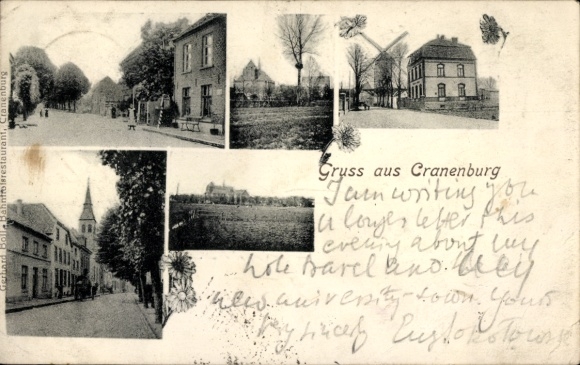 Gruss aus Cranenburg
I am writing you
a longer letter this
evening about my
hole travel and
new university-town. Yours
very sincerely
Gerhard Hoin, Bahnhofsrestaurant, Cranenburg